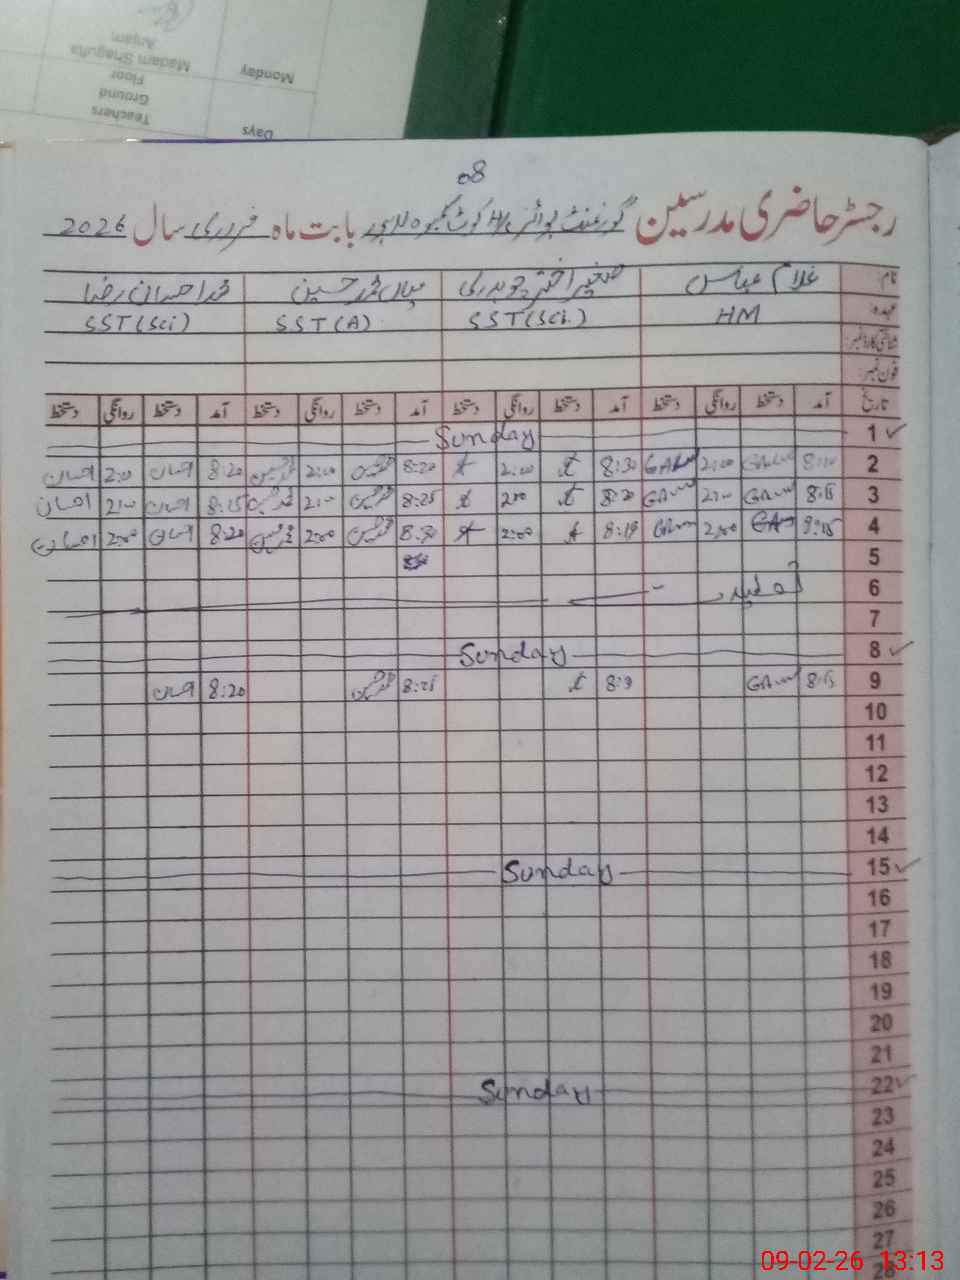 Monday
Madam Shagufta
Anjam
Days
Teachers
Ground
Floor
08
رجسٹر حاضری مدرسین گورنمنٹ بوائز H/S کوٹ بابت ماہ فروری سال 2026
نام: غلام عباس صغیر اختر چوہدری میاں محمد حسین محمد احسان رضا
عہدہ: HM SST(Sci) SST(A) SST(Sci)
شناختی کارڈ نمبر:
فون نمبر:
تاریخ آمد دستخط روانگی دستخط آمد دستخط روانگی دستخط آمد دستخط روانگی دستخط آمد دستخط روانگی دستخط
1 Sunday
2 2:00 8:30 2:00 8:20 2:00 8:20 احسان 2:00 احسان
3 8:15 2:00 8:20 2:00 8:25 2:00 8:15 احسان 2:00 احسان
4 9:15 2:00 8:19 2:00 8:30 2:00 8:20 احسان 2:00 احسان
5
6 تعطیل
7
8 Sunday
9 8:15 8:25 8:20 احسان
10
11
12
13
14
15 Sunday
16
17
18
19
20
21
22 Sunday
23
24
25
26
27
28
09-02-26 13:13